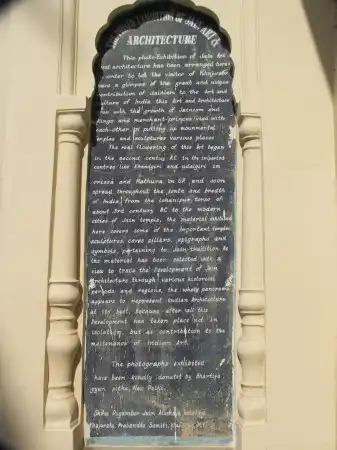 EXHIBITION OF JAIN ART &
ARCHITECTURE
This photo-Exhibition of Jain Art
and architecture has been arranged here
in order to let the visitor of Khajuraho
have a glimpse of the great and unique
contribution of Jainism to the Art and
culture of India. this Art and Architecture
grew with the growth of Jainism and
kings and merchant-princes vied with
each other in putting up monumental
temples and sculptures various places
The real flowering of this Art began
in the second century BC in its
centres like Khandgiri and udaigiri in
orissa and Mathura in UP, and soon
spread throughout the length and breadth
of India, from the lohanipur torso of
about 3rd century BC to the modern
cities of Jain temple, the material exhibited
here covers some of the important temples
sculptures caves pillars, epigraphs and
symbols pertaining to Jain tradition
the material has been collected with a
view to trace the development of Jain
architecture through various historical
periods and regions, the whole panorama
appears to represent indian Architecture
at its best. because after all this
Development has taken place not in
isolation, but as contribution to the
mainstance of Indian Art.
The photographs exhibited
have been kindly donated by Bhartiya
gyan pitha, New Delhi.
Shri Digamber Jain Atishaya kshetra
Khajuraho Prabandha Samiti,